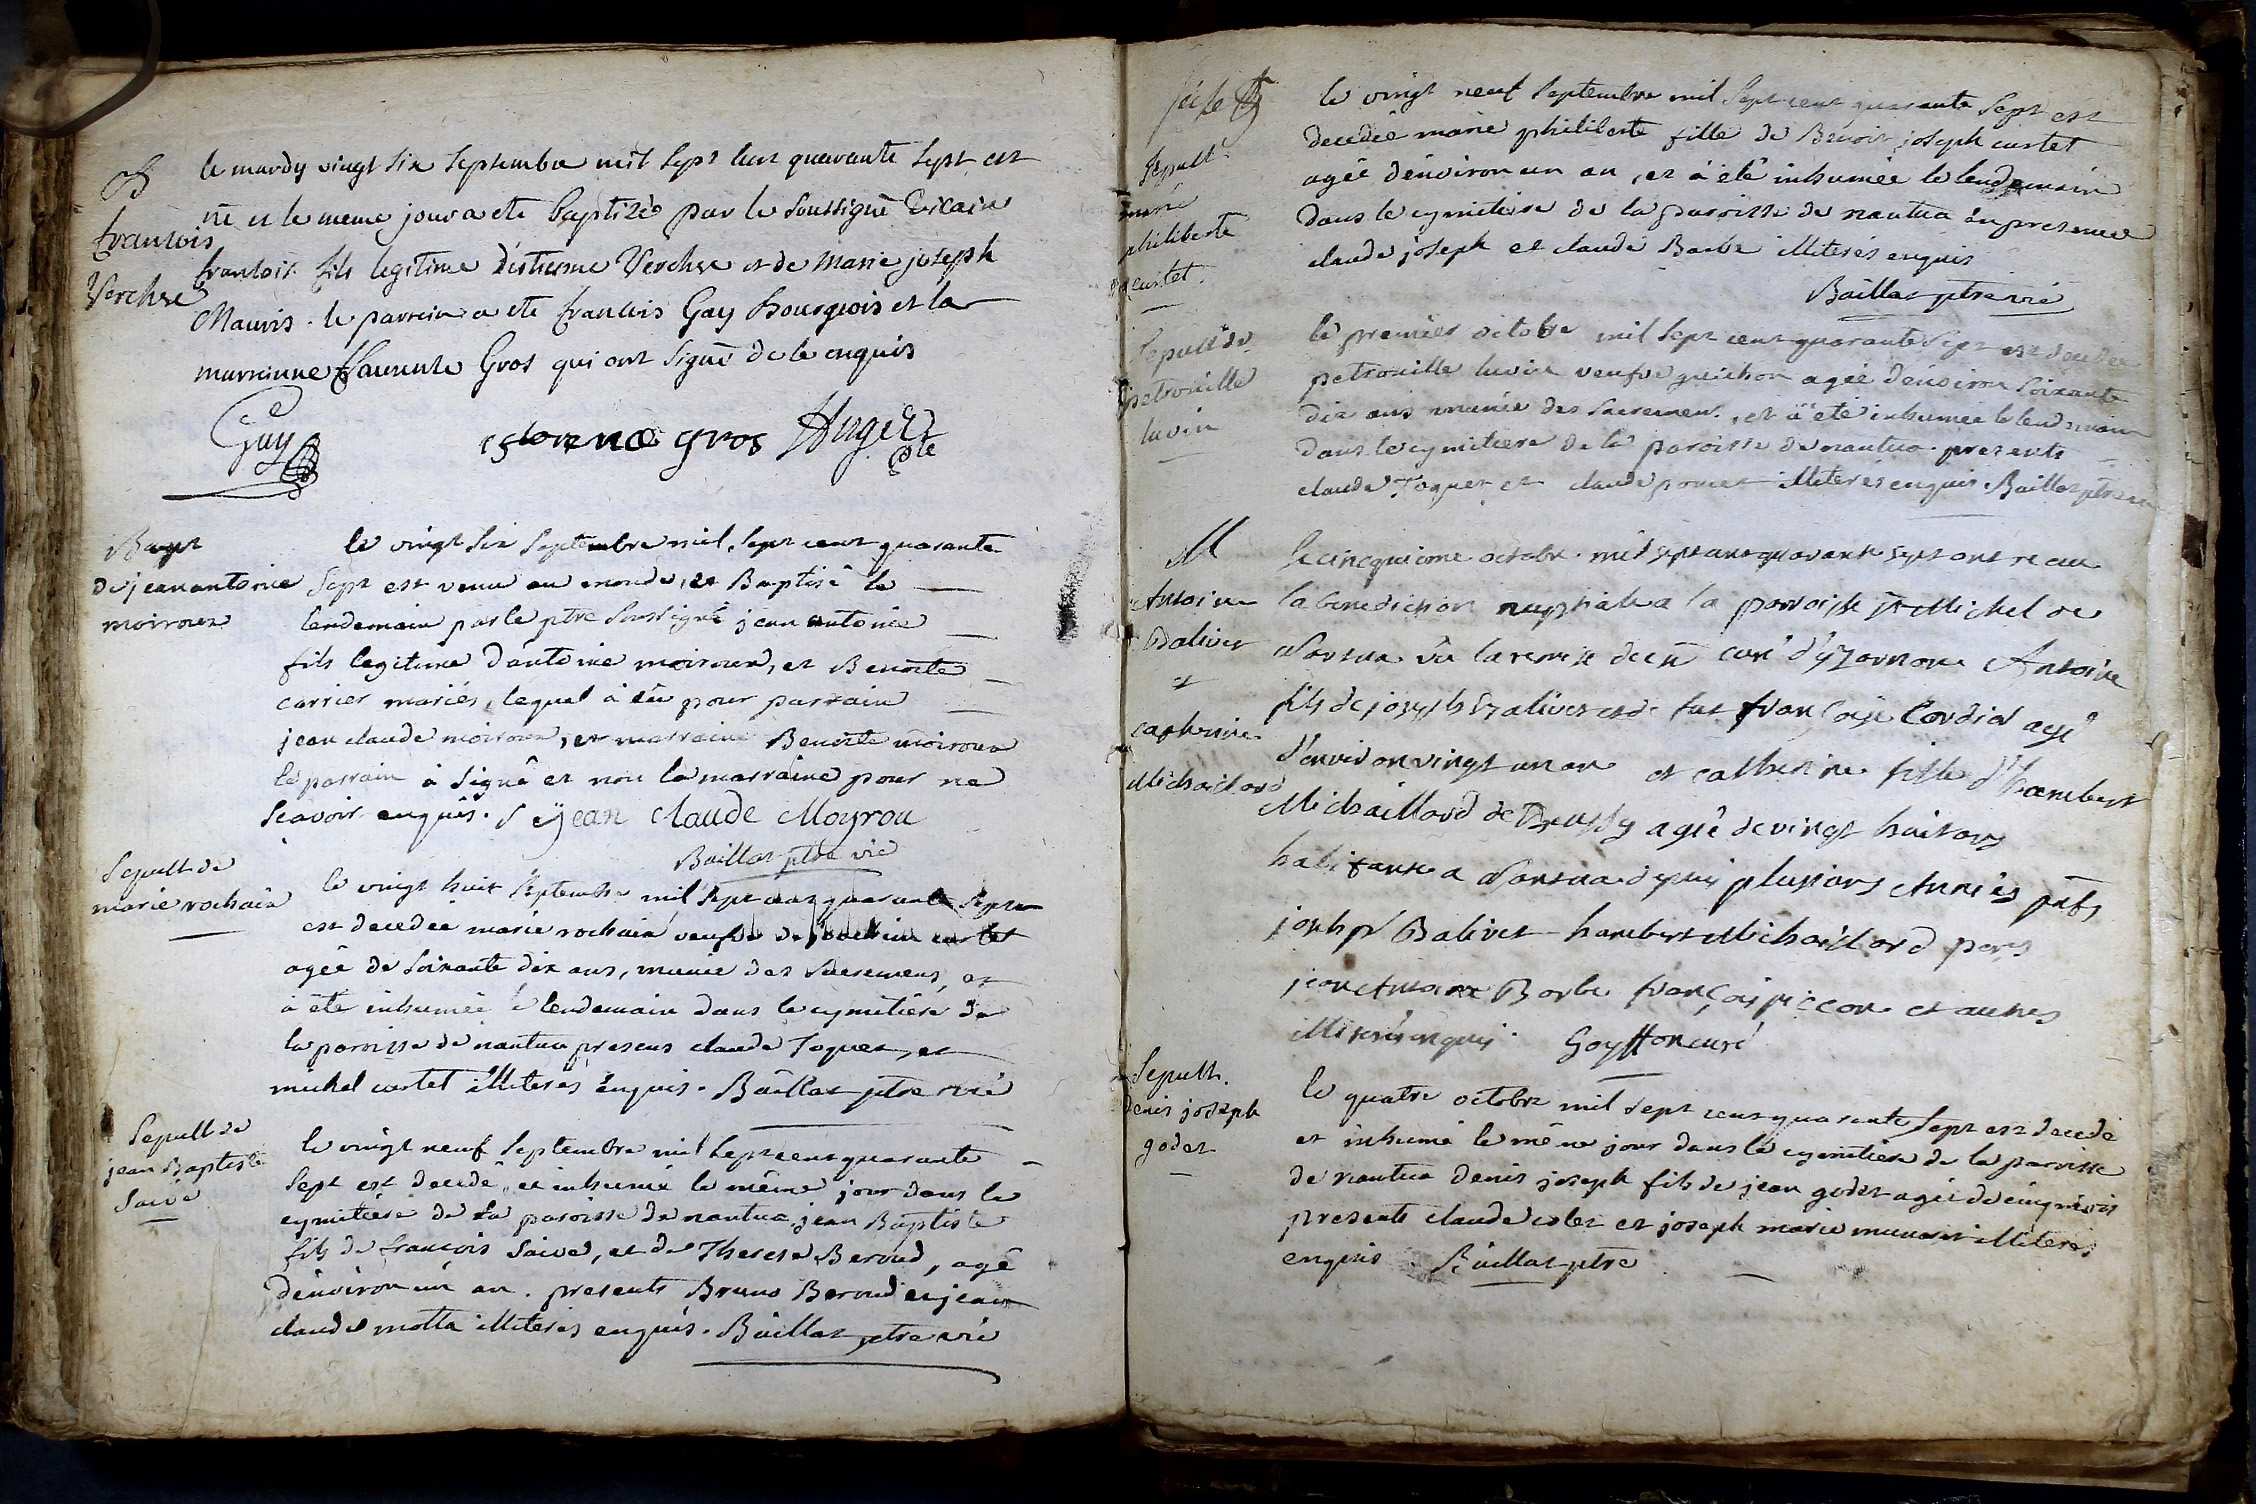 B
francois
Verchre
le mardy vingt six septembre mil sept cent quarante sept est
né et le meme jour a eté baptizé par le soussigné vicaire
francois fils legitime d'estienne Verchre et de Marie joseph
Mauris . le parrein a eté francois Gay Bourgeois et la
marrienne Laurente Gros qui ont signé de ce enquis
Gay
Lorence gros Auger
Bapt
de jean antoine
moiroux
le vingt six septembre mil sept cent quarante
sept est venu au monde, et Baptisé le
lendemain par le ptre soussigné jean antoine
fils legitime d'antoine moiroux, et Benoite
carrier mariés, lequel à eu pour parrain
jean claude moiroux, et marraine Benoite moiroux
le parrain à signé et non la marraine pour ne
scavoir enquis. jean claude Moyrou
Baillat ptre vic
Sepult de
marie rochaix
le vingt huit septembre mil sept cent quarante sept
est decedée marie rochaix veufve de curtet
agée de soixante dix ans, munie des sacremens, et
à été inhumée le lendemain dans le cymitiere de
la paroisse de nantua presens claude Toquet, et
michel curtet illiterés enquis. Baillat ptre vic
Sepult de
jean Baptiste
Saive
le vingt neuf septembre mil sept cent quarante
sept est decedé, et inhumé le même jour dans le
cymitiere de la paroisse de nantua jean Baptiste
fils de francois Saive, et de Therese Beroud, agé
d'environ un an. presents Bruno Beroud et jean
claude motta illiterés enquis. Baillat ptre vic
Sepult
marie
philiberte
curtet.
le vingt neuf septembre mil sept cent quarante sept est
decedée marie philiberte fille de Benoit joseph curtet
agée d'environ un an, et à été inhumée le lendemain
dans le cymitiere de la paroisse de nantua en presence
claude joseph et claude Barbe illiterés enquis
Baillat ptre vic
Sepult de
petronille
luvin
le premier octobre mil sept cent quarante sept est decedée
petronille luvin veufve guichon agée d'environ soixante
dix ans munie des sacremens, et à été inhumée le lendemain
dans le cymitiere de la paroisse de nantua. presents
claude Toquet et claude poncet illiterés enquis. Baillat ptre vic
M
Antoine
Balivet
et
catherine
Michaillard
le cincquieme octobre mil sept cent quarante sept ont receu
la benediction nuptiale a la parroisse st Michel de
Nantua vu la remise de curé d'yzernore Antoine
fils de joseph Balivet et de fut françoise Cordiol agé
d'environ vingt un an et catherine fille d'humbert
Michaillard de agée de vingt huit ans
habitante a Nantua depuis plusiurs Années pnts
joseph Balivet humbert Michaillard pers
jean Antoine Barbe françois piccon et autres
illiterés enquis. Goyffon curé
Sepult.
denis joseph
godet
le quatre octobre mil sept cent quarante sept est decedé
et inhumé le même jour dans le cymitiere de la paroisse
de nantua denis joseph fils de jean godet agé de cinq mois
presents claude colet et joseph marie illiterés
enquis Baillat ptre